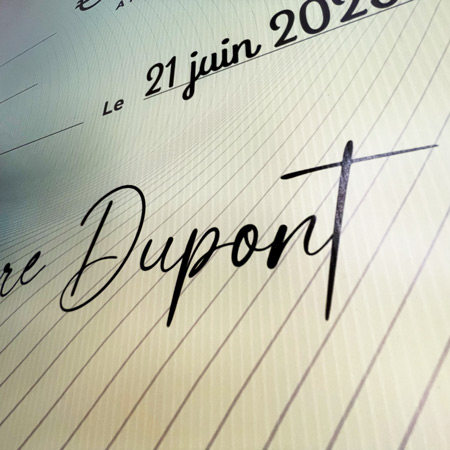 Le 21 juin
re Dupont